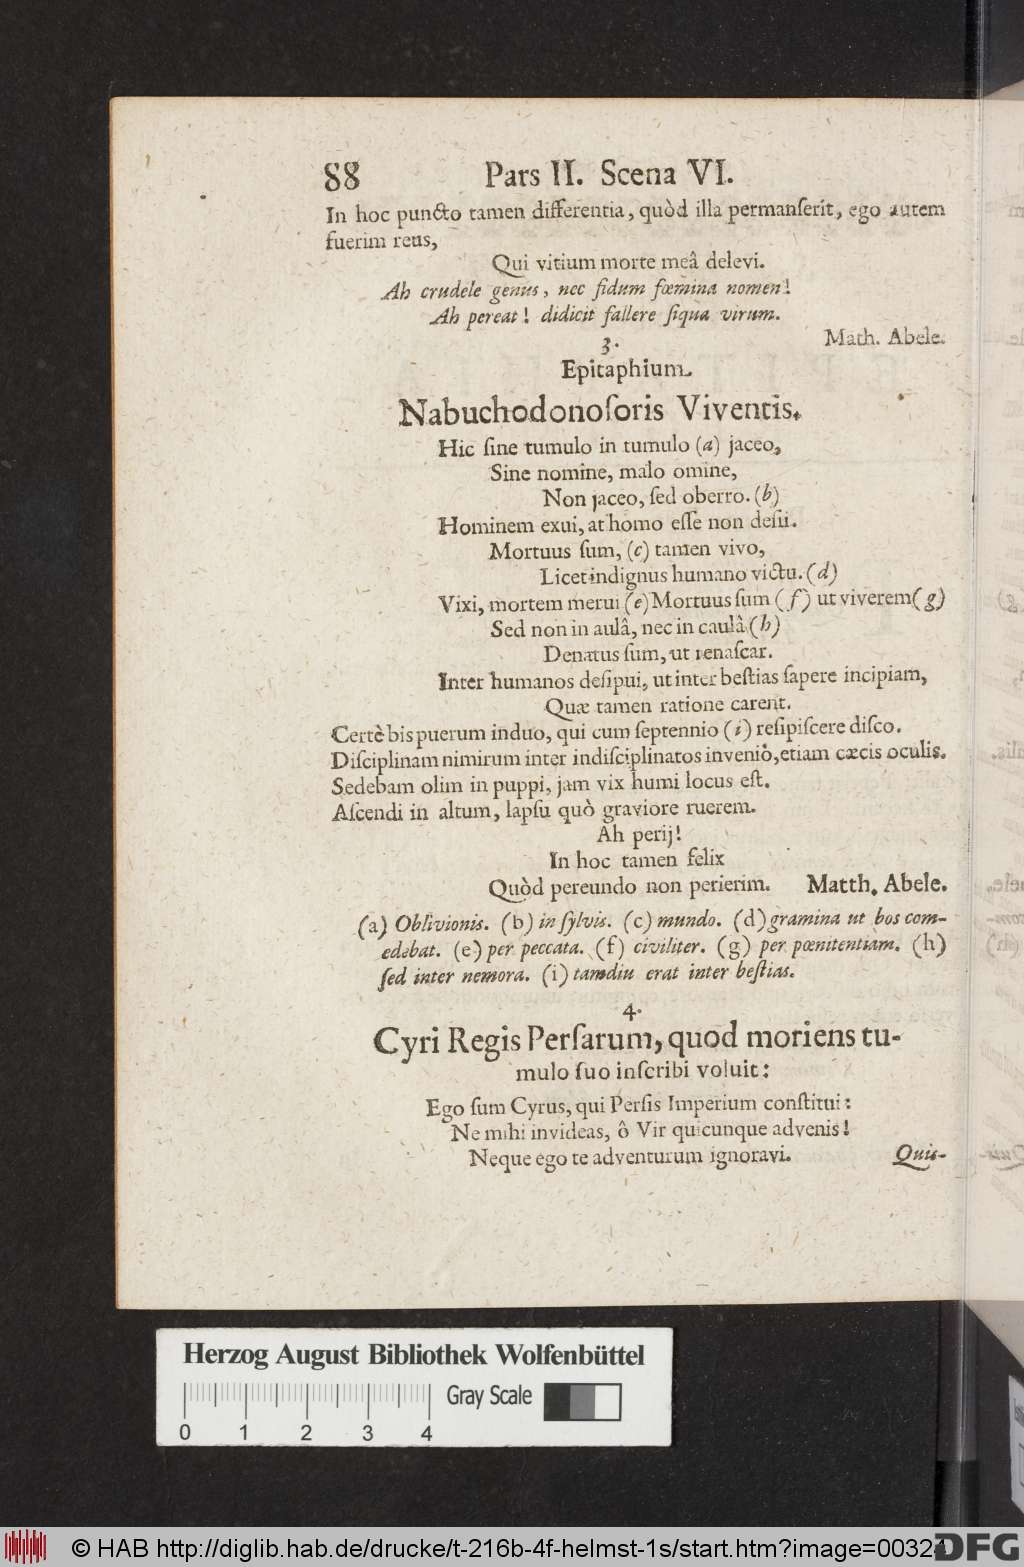 88 Pars II. Scena VI.
In hoc puncto tamen differentia, quòd illa permanſerit, ego autem
fuerim reus,
Qui vitium morte meâ delevi.
Ah crudele genus, nec fidum fœmina nomen!
Ah pereat! didicit fallere ſiqua virum.
Math. Abele.
3.
Epitaphium.
Nabuchodonoſoris Viventis.
Hic ſine tumulo in tumulo (a) jaceo,
Sine nomine, malo omine,
Non jaceo, ſed oberro. (b)
Hominem exui, at homo eſſe non deſii.
Mortuus ſum, (c) tamen vivo,
Licet indignus humano victu. (d)
Vixi, mortem merui (e) Mortuus ſum (f) ut viverem (g)
Sed non in aulâ, nec in caulâ (h)
Denatus ſum, ut renaſcar.
Inter humanos deſipui, ut inter beſtias ſapere incipiam,
Quæ tamen ratione carent.
Certè bis puerum induo, qui cum ſeptennio (i) reſipiſcere diſco.
Diſciplinam nimirum inter indiſciplinatos invenio, etiam cæcis oculis.
Sedebam olim in puppi, jam vix humi locus eſt.
Aſcendi in altum, lapſu quò graviore ruerem.
Ah perij!
In hoc tamen felix
Quòd pereundo non perierim. Matth. Abele.
(a) Oblivionis. (b) in ſylvis. (c) mundo. (d) gramina ut bos com-
edebat. (e) per peccata. (f) civiliter. (g) per pœnitentiam. (h)
ſed inter nemora. (i) tamdiu erat inter beſtias.
4.
Cyri Regis Perſarum, quod moriens tu-
mulo ſuo inſcribi voluit:
Ego ſum Cyrus, qui Perſis Imperium conſtitui:
Ne mihi invideas, ô Vir quicunque advenis!
Neque ego te adventurum ignoravi.
Quis-
Herzog August Bibliothek Wolfenbüttel
Gray Scale
0 1 2 3 4
© HAB http://diglib.hab.de/drucke/t-216b-4f-helmst-1s/start.htm?image=00324
DFG